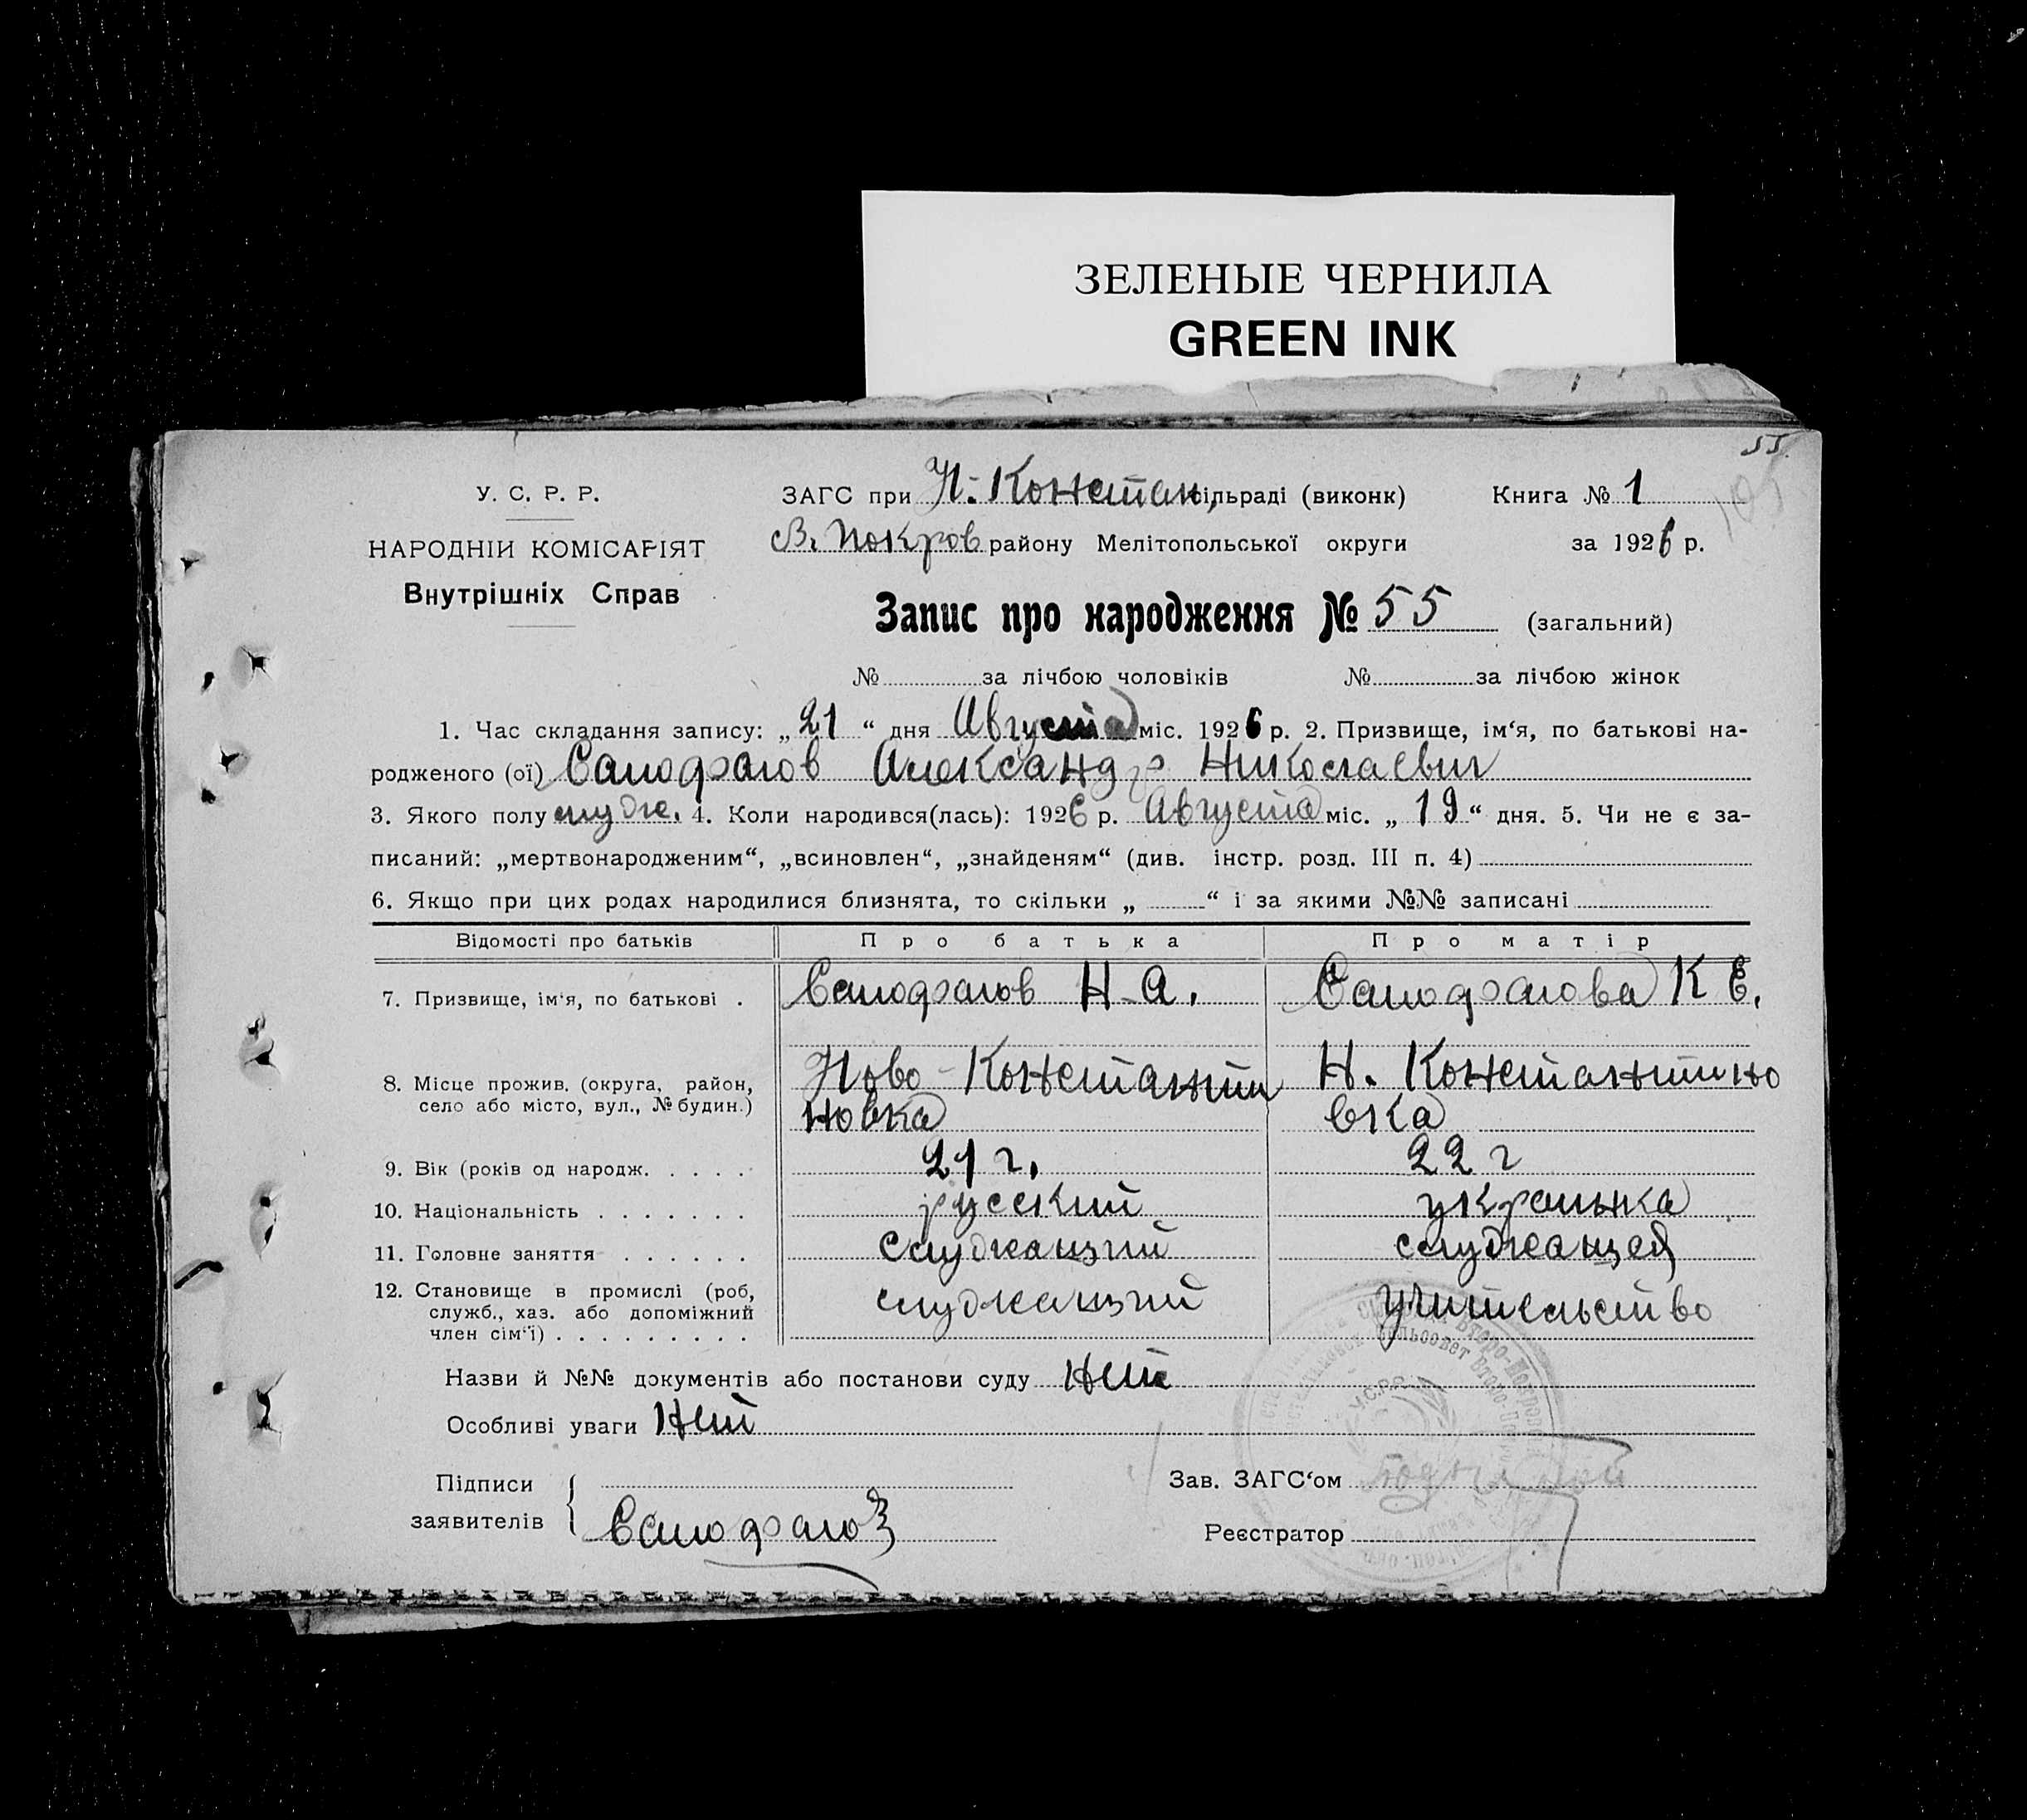 ЗЕЛЕНЫЕ ЧЕРНИЛА
GREEN INK
55.
У. С. Р. Р.
НАРОДНІЙ КОМІСАРІЯТ
Внутрішніх Справ
ЗАГС при Н.-Констан, сільраді (виконк)
Книга № 1
В. Покров району Мелітопольської округи
за 1926 р.
Запис про народження № 55 (загальний)
№ за лічбою чоловіків № за лічбою жінок
1. Час складання запису: „21“ дня Августа міс. 1926 р. 2. Призвище, ім‘я, по батькові на-
родженого (ої) Александр Николаевич
3. Якого полу муж. 4. Коли народився(лась): 1926 р. Августа міс. „19“ дня. 5. Чи не є за-
писаний: „мертвонародженим“, „всиновлен“, „знайденям“ (див. інстр. розд. III п. 4)
6. Якщо при цих родах народилися близнята, то скільки „ “ і за якими №№ записані
Відомості про батьків Про батька Про матір
7. Призвище, ім‘я, по батькові . Н. А. К Е.
8. Місце прожив. (округа, район, село або місто, вул., № будин.) Ново-Константи Н. Константино
новка вка
9. Вік (років од народж. . . . . 21 г. 22 г
10. Національність . . . . . . . русский украинка
11. Головне заняття . . . . . . служащий служащея
12. Становище в промислі (роб, служб., хаз. або допоміжний член сім‘ї) . . . . . . . . . служащий учительство
Назви й №№ документів або постанови суду нет
Особливі уваги нет
Підписи
заявителів
Зав. ЗАГС‘ом
Реєстратор
У.С.Р.Р.